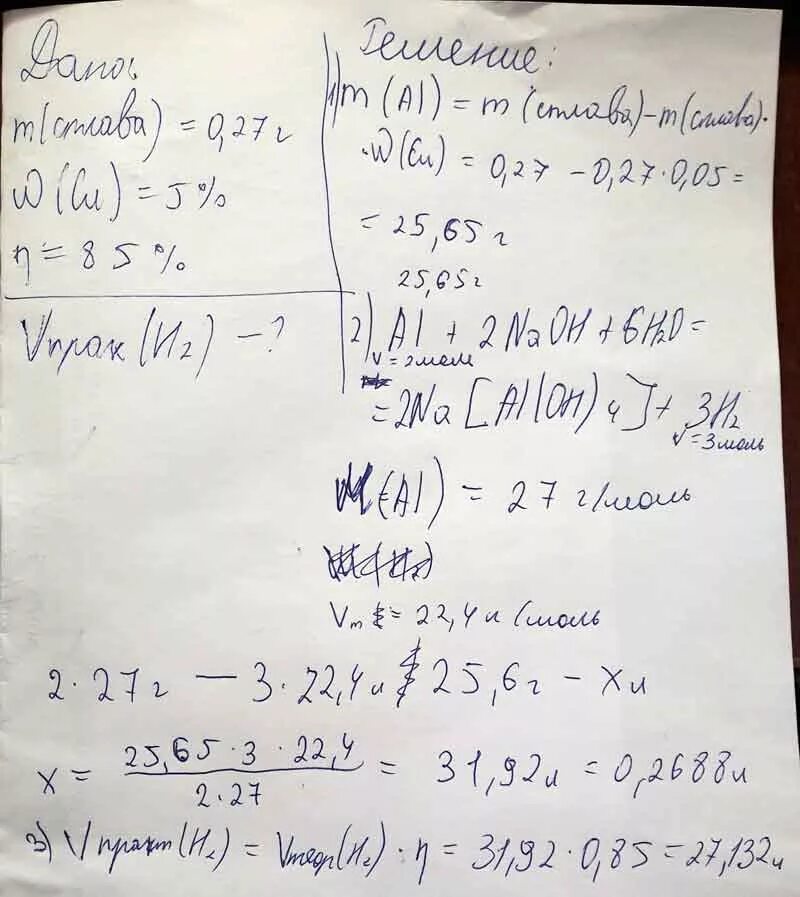 Дано:
m(сплава) = 0,27 г
W(Cu) = 5%
η = 85%
Vпрак(H₂) – ?
Решение:
1) m(Al) = m(сплава) – m(сплава)·
·W(Cu) = 0,27 – 0,27·0,05 =
= 25,65 г
25,65 г
2) Al + 2NaOH + 6H₂O =
ν = 2 моль
= 2Na[Al(OH)₄] + 3H₂
ν = 3 моль
M(Al) = 27 г/моль
Vm = 22,4 л/моль
2·27г — 3·22,4л 25,6г – xл
x = 25,65·3·22,4 / 2·27 = 31,92л = 0,2688л
3) Vпракт(H₂) = Vтеор(H₂)·η = 31,92·0,85 = 27,132л